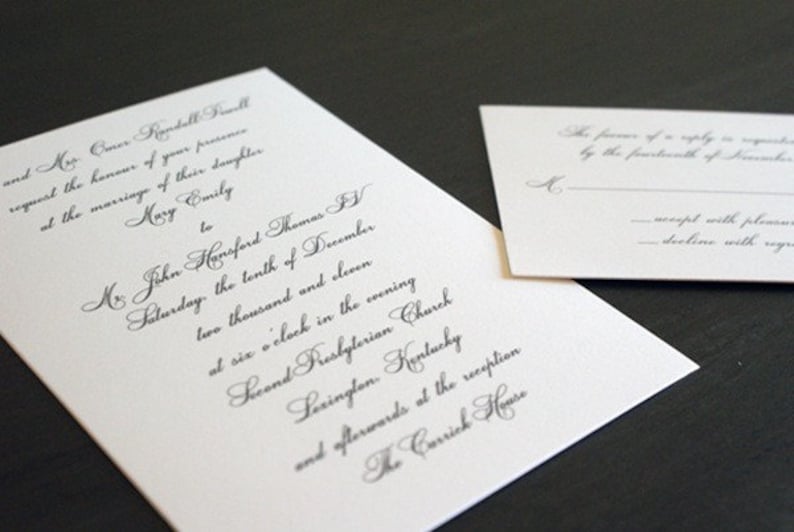 and Mrs. Omer Randall Powell
request the honour of your presence
at the marriage of their daughter
Mary Emily
to
Mr. John Hansford Thomas IV
Saturday, the tenth of December
two thousand and eleven
at six o'clock in the evening
Second Presbyterian Church
Lexington, Kentucky
and afterwards at the reception
The Carrick House
The favour of a reply is requested
by the fourteenth of November
M
accept with pleasure
decline with regre